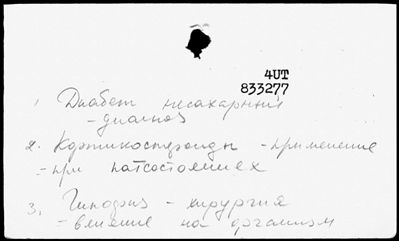 4UT
833277
1. Диабет несахарный
- диагноз
2. Кортикостероиды - применение
- при патсостояниех
3. Гипофиз - хирургия
- влияние на организм